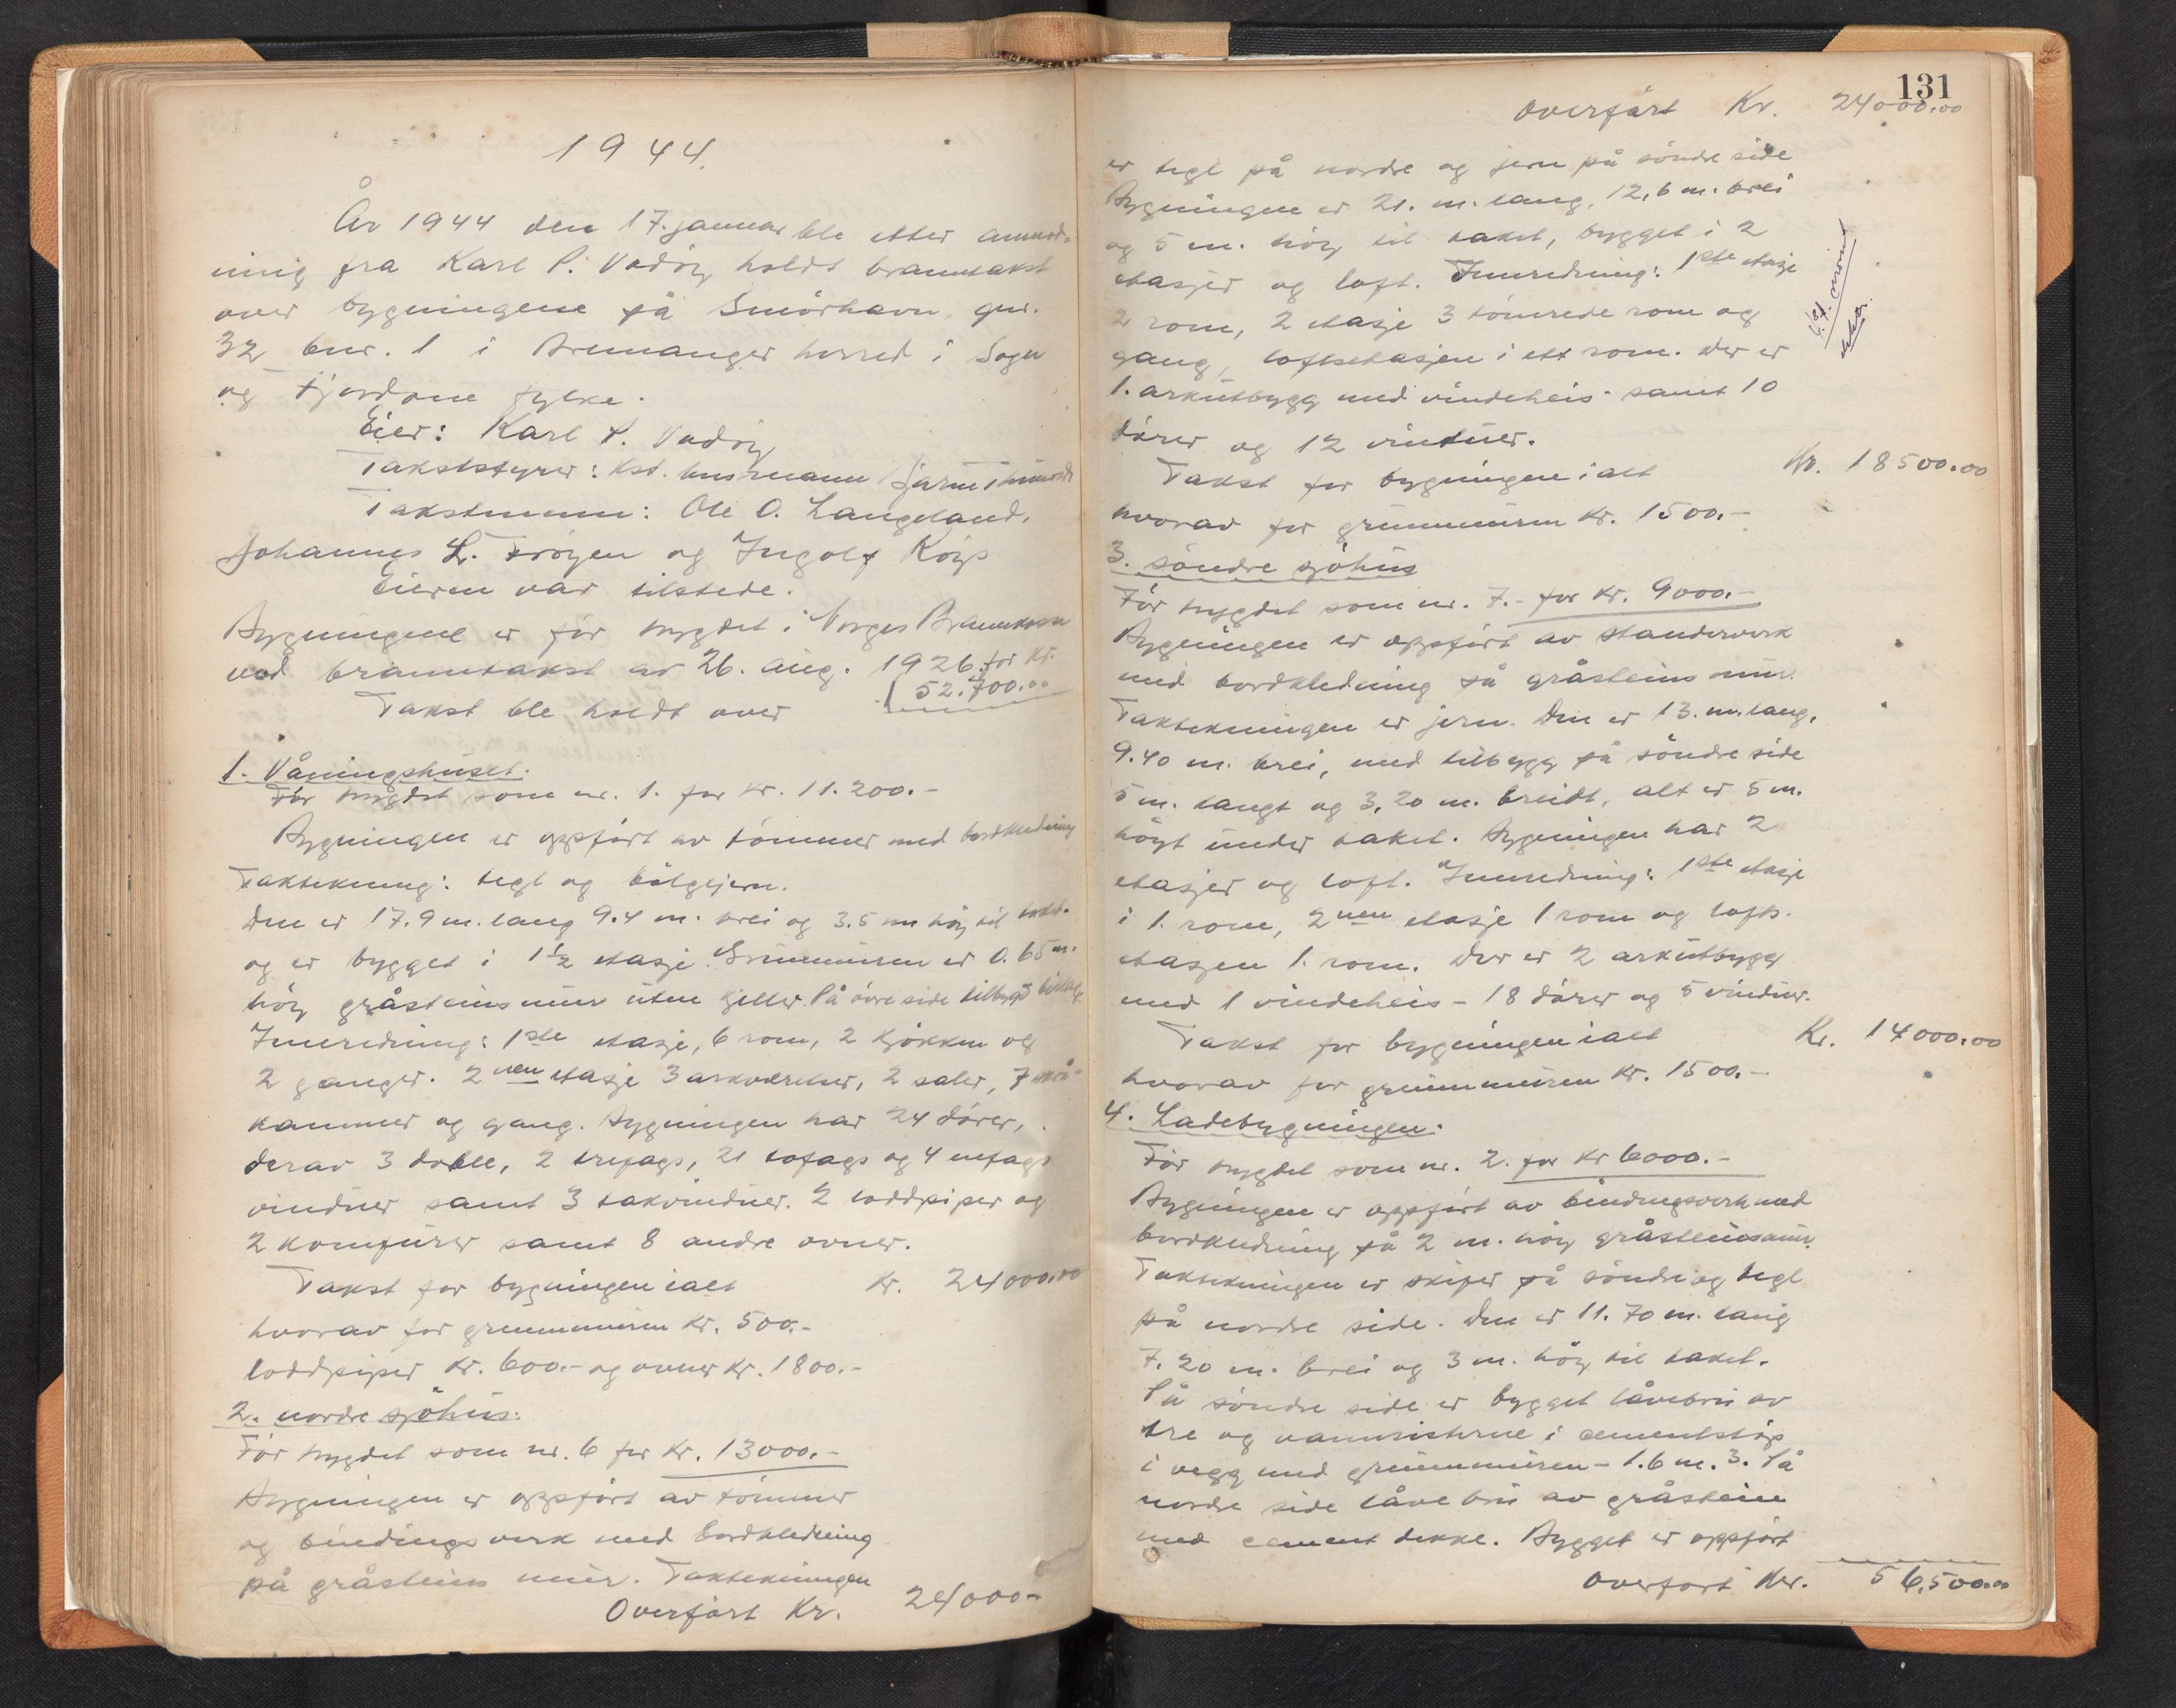 1944.
År 1944 den 17. januar ble etter anmod-
ning fra Karl P. Vadöy holdt branntakst
over bygningene på Smörhavn, gnr.
32 bnr. 1 i Bremanger herred i Sogn
og Fjordane fylke.
Eier: Karl P. Vadöy
Takststyrer: Kst. lensmann
Takstmenn: Ole O. Langeland,
Johannes L. Fröyen og Ingolf
Eieren var tilstede.
Bygningene er för trygdet i Norges Brannkasse
ved branntakst av 26. aug. 1926 for Kr.
52.700.00
Takst ble holdt over
1. Våningshuset.
För trygdet som nr. 1. for Kr. 11.200.-
Bygningen er oppfört av tömmer med bordkledning
Taktekning: tegl og bölgejern.
Den er 17.9 m. lang 9.4 m. brei og 3.5 m höy til taket.
og er bygget i 1½ etasje. Grunnmuren er 0.65 m.
höy gråsteinsmur uten kjeller. På övre side tilbygd
Innredning: 1ste etasje, 6 rom, 2 kjökken og
2 ganger. 2nen etasje 3 arkværelser, 2 saler, 7 skrå-
kammer og gang. Bygningen har 24 dörer,
derav 3 doble, 2 trefags, 21 tofags og 4 enfags
vinduer samt 3 takvinduer. 2 loddpiper og
2 komfurer samt 8 andre ovner.
Takst for bygningen ialt Kr. 24000.00
hvorav for grunnmuren Kr. 500.-
loddpiper Kr. 600.- og ovner Kr. 1800.-
2. nordre sjöhus:
För trygdet som nr. 6 for Kr. 13000.-
Bygningen er oppfört av tömmer
og bindingsverk med bordkledning
på gråsteins mur. Taktekningen
Overfört Kr. 24000-
131
Overfört Kr. 24000.00
er tegl på nordre og jern på söndre side
Bygningen er 21. m. lang, 12,6 m. brei
og 5 m. höy til taket, bygget i 2
etasjer og loft. Innredning: 1ste etasje
2 rom, 2 etasje 3 tömrede rom og
gang, loftsetasjen i ett rom. Der er
1. arkutbygg med vindeheis samt 10
dörer og 12 vinduer.
Takst for bygningen ialt Kr. 18500.00
hvorav for grunnmuren Kr. 1500.-
3. söndre sjöhus
För trygdet som nr. 7.- for Kr. 9000.-
Bygningen er oppfört av standerverk
med bordkledning på gråsteins mur.
Taktekningen er jern. Den er 13. m. lang,
9.40 m. brei, med tilbygg på söndre side
5 m. langt og 3,20 m. breidt, alt er 5 m.
höyt under taket. Bygningen har 2
etasjer og loft. Innredning: 1ste etasje
i 1. rom, 2nen etasje 1 rom og lofts-
etasjen 1. rom. Der er 2 arkutbygg
med 1 vindeheis - 18 dörer og 5 vinduer.
Takst for bygningen ialt Kr. 14000.00
hvorav for grunnmuren Kr. 1500.-
4. Ladebygningen.
För trygdet som nr. 2. for Kr 6000.-
Bygningen er oppfört av bindingsverk med
bordkledning på 2 m. höy gråsteinsmur.
Taktekningen er skifer på söndre og tegl
på nordre side. Den er 11.70 m. lang
7.20 m. brei og 3 m. höy til taket.
På söndre side er bygget låvebru av
tre og vanncisterne i cementstöp
i vegg med grunnmuren - 1.6 m.3. På
nordre side låvebru av gråstein
med cement dekke. Bygget er oppfört
Overfört Kr. 56,500.00